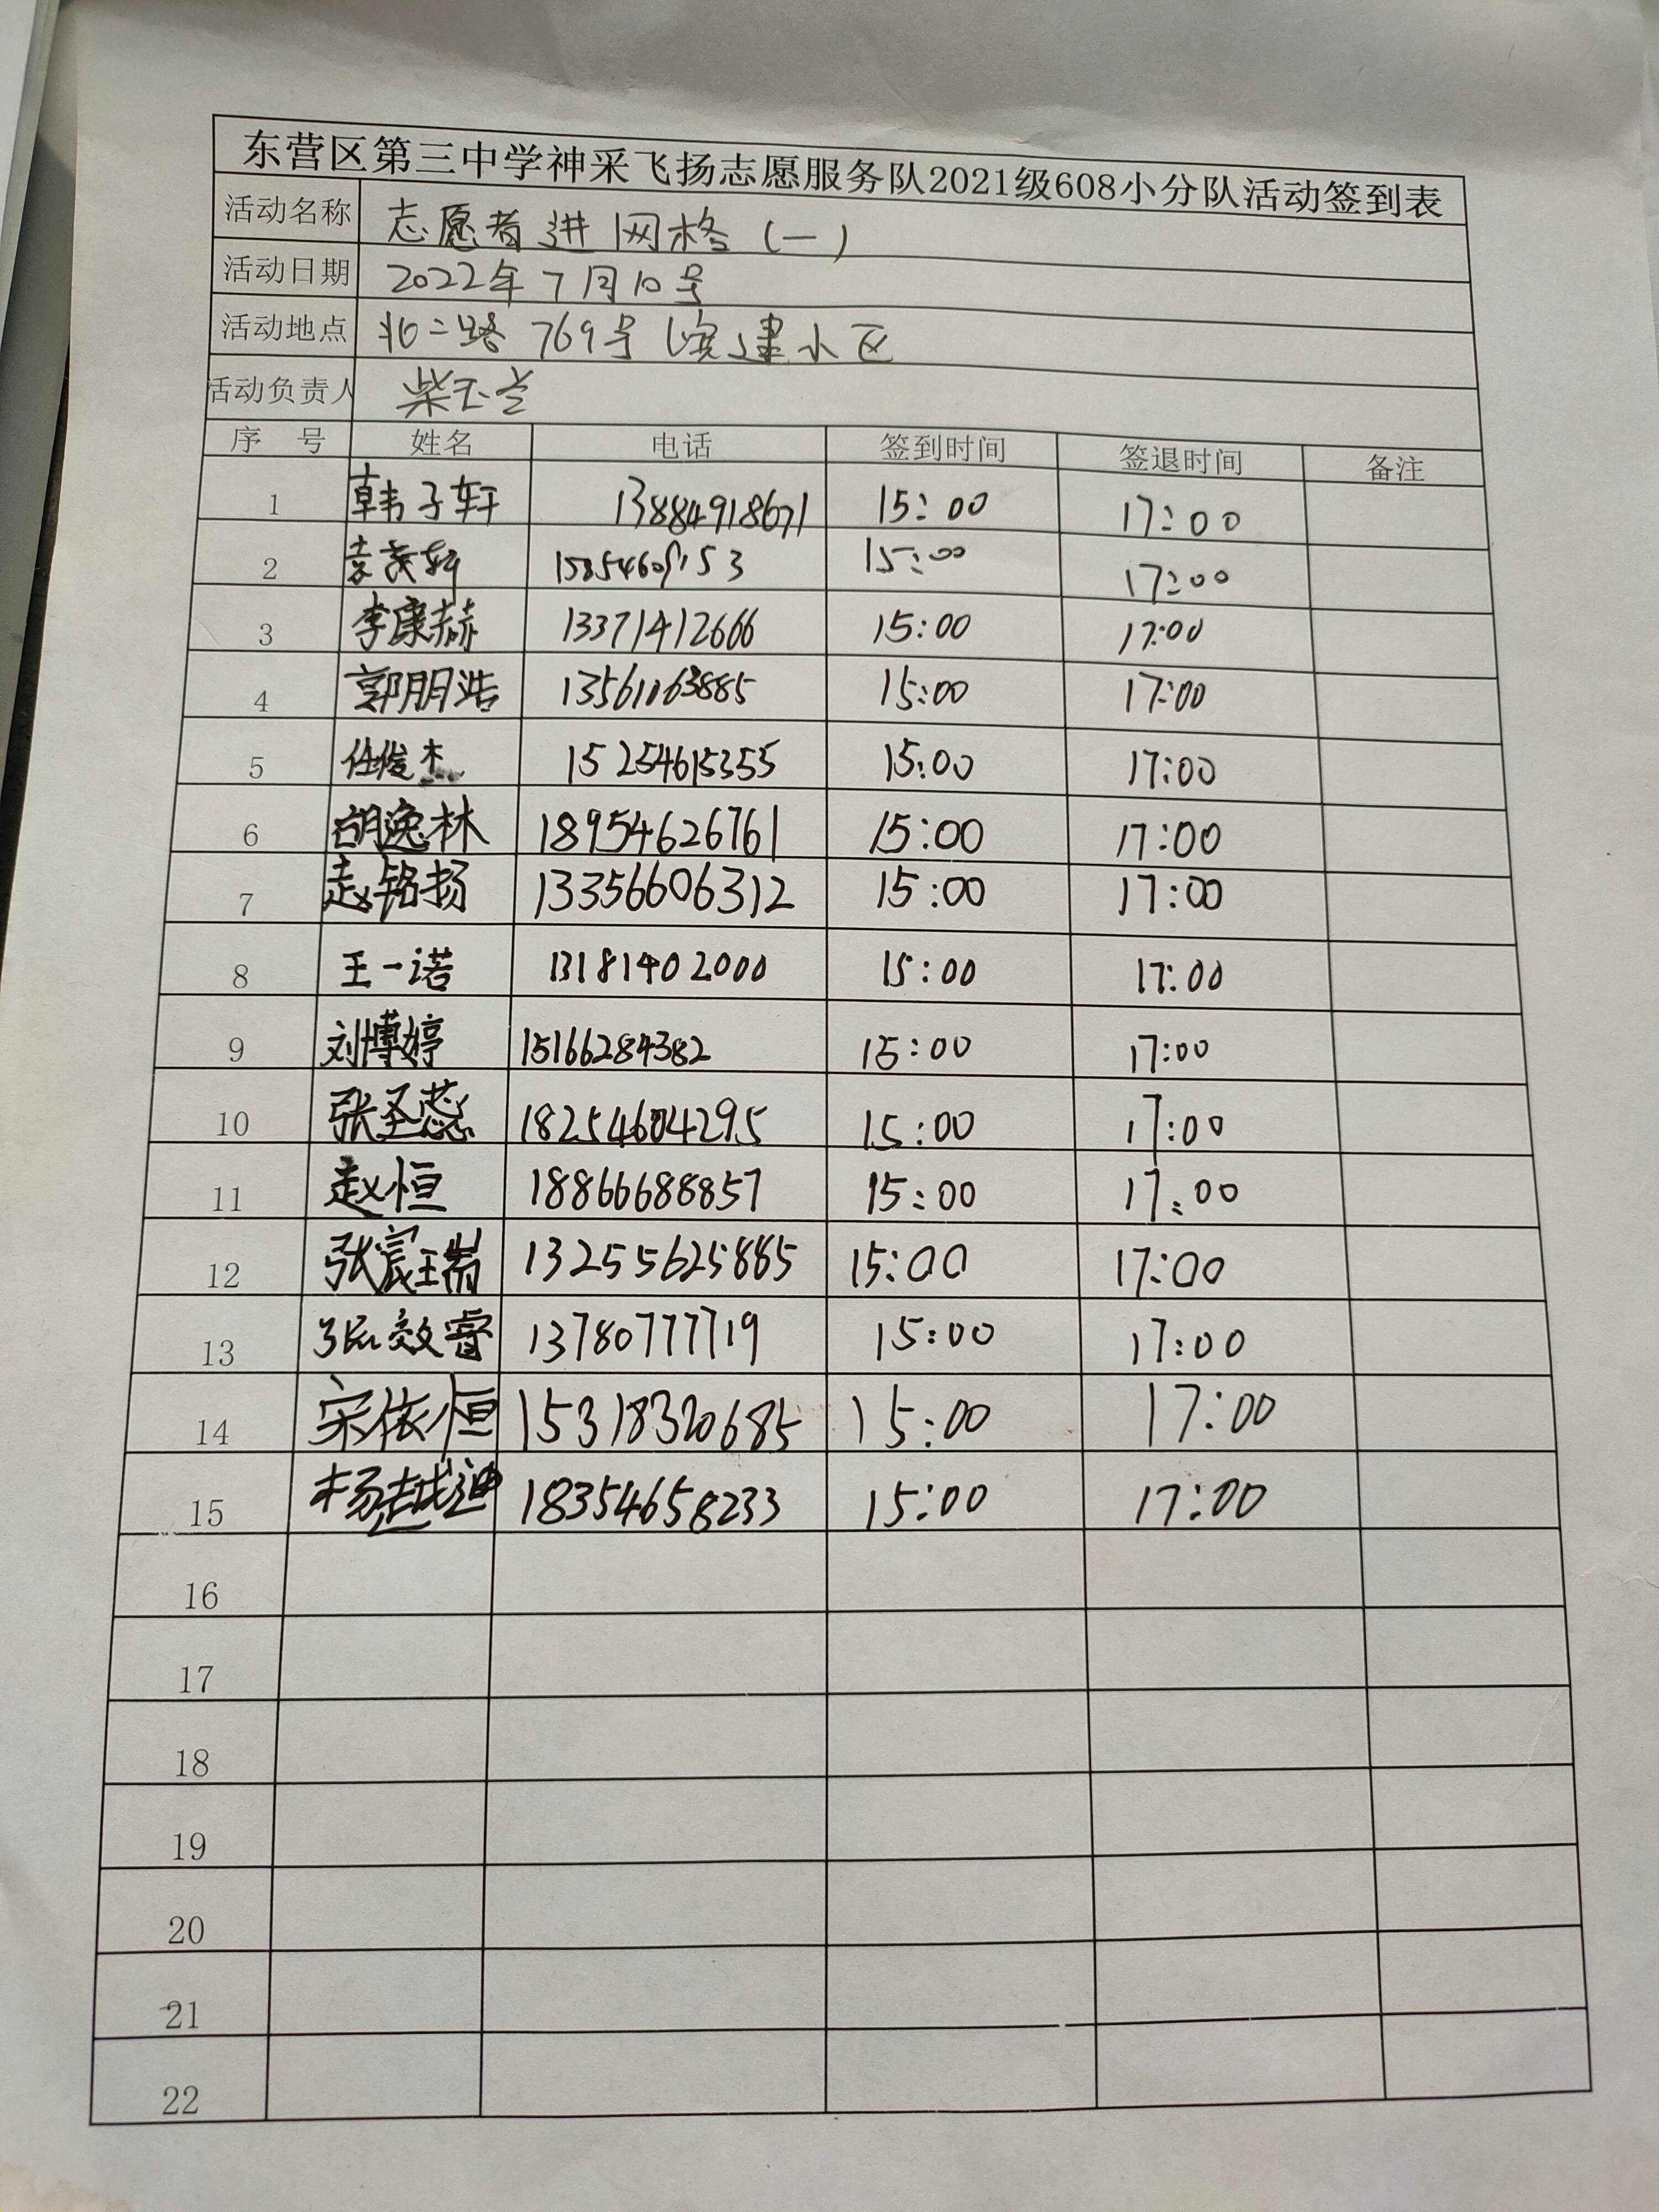 东营区第三中学神采飞扬志愿服务队2021级608小分队活动签到表
活动名称 志愿者进网格(一)
活动日期 2022年7月10号
活动地点 北二路769号滨建小区
活动负责人 柴玉
序 号 姓名 电话 签到时间 签退时间 备注
1 韩子轩 13884918671 15:00 17:00
2 袁 15:00 17:00
3 李康赫 13371412666 15:00 17:00
4 郭朋浩 13561163885 15:00 17:00
5 任俊杰 15254615355 15:00 17:00
6 胡逸林 18954626761 15:00 17:00
7 赵铭扬 13356606312 15:00 17:00
8 王一诺 13181402000 15:00 17:00
9 刘博婷 15166284382 15:00 17:00
10 张圣蕊 18254604295 15:00 17:00
11 赵恒 18866688857 15:00 17:00
12 张宸瑞 13255625885 15:00 17:00
13 张效睿 13780777719 15:00 17:00
14 宋依恒 15318320685 15:00 17:00
15 杨越迪 18354658233 15:00 17:00
16
17
18
19
20
21
22